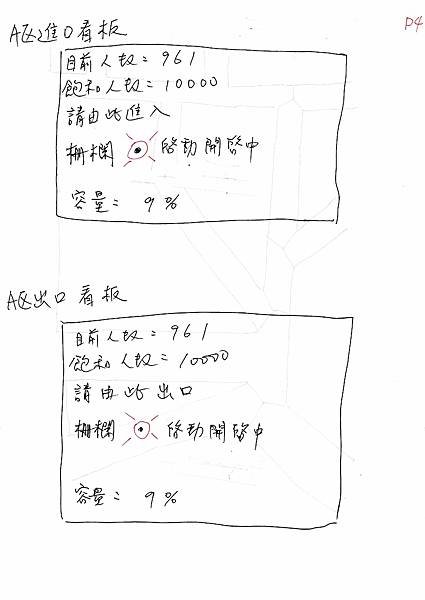 P4
A区進口看板
目前人数= 961
飽和人数= 10000
請由此進入
栅欄 啓動開啓中
容量= 9%
A区出口看板
目前人数= 961
飽和人数= 10000
請由此出口
栅欄 啓動開啓中
容量= 9%